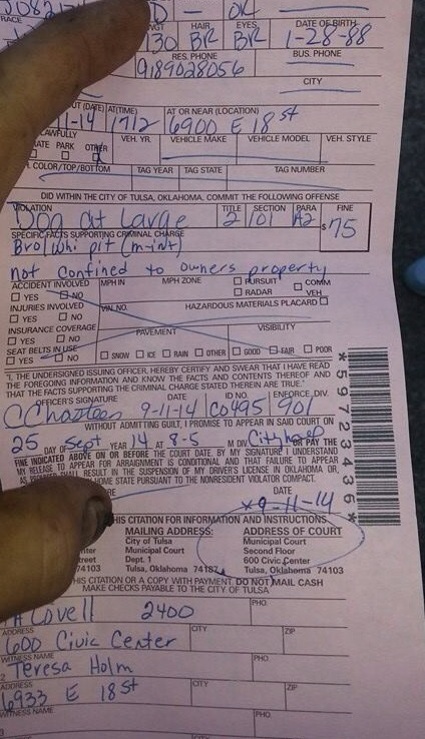 D - OK
RACE HGT HAIR EYES DATE OF BIRTH
130 BR BR 1-28-88
RES. PHONE BUS. PHONE
9189028056
CITY
OUT (DATE) AT(TIME) AT OR NEAR (LOCATION)
11-14 1712 6900 E 18st
LAWFULLY VEH. YR. VEHICLE MAKE VEHICLE MODEL VEH. STYLE
ATE PARK OTHER
COLOR/TOP/BOTTOM TAG YEAR TAG STATE TAG NUMBER
DID WITHIN THE CITY OF TULSA, OKLAHOMA, COMMIT THE FOLLOWING OFFENSE
VIOLATION TITLE SECTION PARA FINE
Dog at Large 2 101 A2 $75
SPECIFIC FACTS SUPPORTING CRIMINAL CHARGE
Bro/whi pit (m-int)
not confined to owners property
ACCIDENT INVOLVED MPH IN MPH ZONE PURSUIT COMM
YES NO RADAR VEH
INJURIES INVOLVED VIN. NO. HAZARDOUS MATERIALS PLACARD
YES NO
INSURANCE COVERAGE PAVEMENT VISIBILITY
YES NO
SEAT BELTS IN USE SNOW ICE RAIN OTHER GOOD FAIR POOR
YES NO
"I, THE UNDERSIGNED ISSUING OFFICER, HEREBY CERTIFY AND SWEAR THAT I HAVE READ
THE FOREGOING INFORMATION AND KNOW THE FACTS CONTENTS THEREOF AND
THAT THE FACTS SUPPORTING THE CRIMINAL CHARGE STATED THEREIN ARE TRUE."
OFFICER'S SIGNATURE DATE ID NO. ENFORCE. DIV.
CChasteen 9-11-14 CO495 901
WITHOUT ADMITTING GUILT, I PROMISE TO APPEAR IN SAID COURT ON
25 DAY OF Sept YEAR 14 AT 8-5 M DIV City hall OR PAY THE
FINE INDICATED ABOVE ON OR BEFORE THE COURT DATE. BY MY SIGNATURE I UNDERSTAND
MY RELEASE TO APPEAR FOR ARRAIGNMENT IS CONDITIONAL AND THAT FAILURE TO APPEAR
AS SHALL RESULT IN THE SUSPENSION OF MY DRIVER'S LICENSE IN OKLAHOMA OR,
HOME STATE PURSUANT TO THE NONRESIDENT VIOLATOR COMPACT.
DATE
x9-11-14
*59723436*
THIS CITATION FOR INFORMATION AND INSTRUCTIONS
MAILING ADDRESS: ADDRESS OF COURT
City of Tulsa Municipal Court
nter Municipal Court Second Floor
treet Dept. 1 600 Civic Center
74103 Tulsa, Oklahoma 74187 Tulsa, Oklahoma 74103
THIS CITATION OR A COPY WITH PAYMENT. DO NOT MAIL CASH
MAKE CHECKS PAYABLE TO THE CITY OF TULSA
Lovell 2400 PHO.
ADDRESS CITY ZIP
600 Civic Center
WITNESS NAME PHO.
Teresa Holm
ADDRESS CITY ZIP
6933 E 18st
WITNESS NAME PHO.